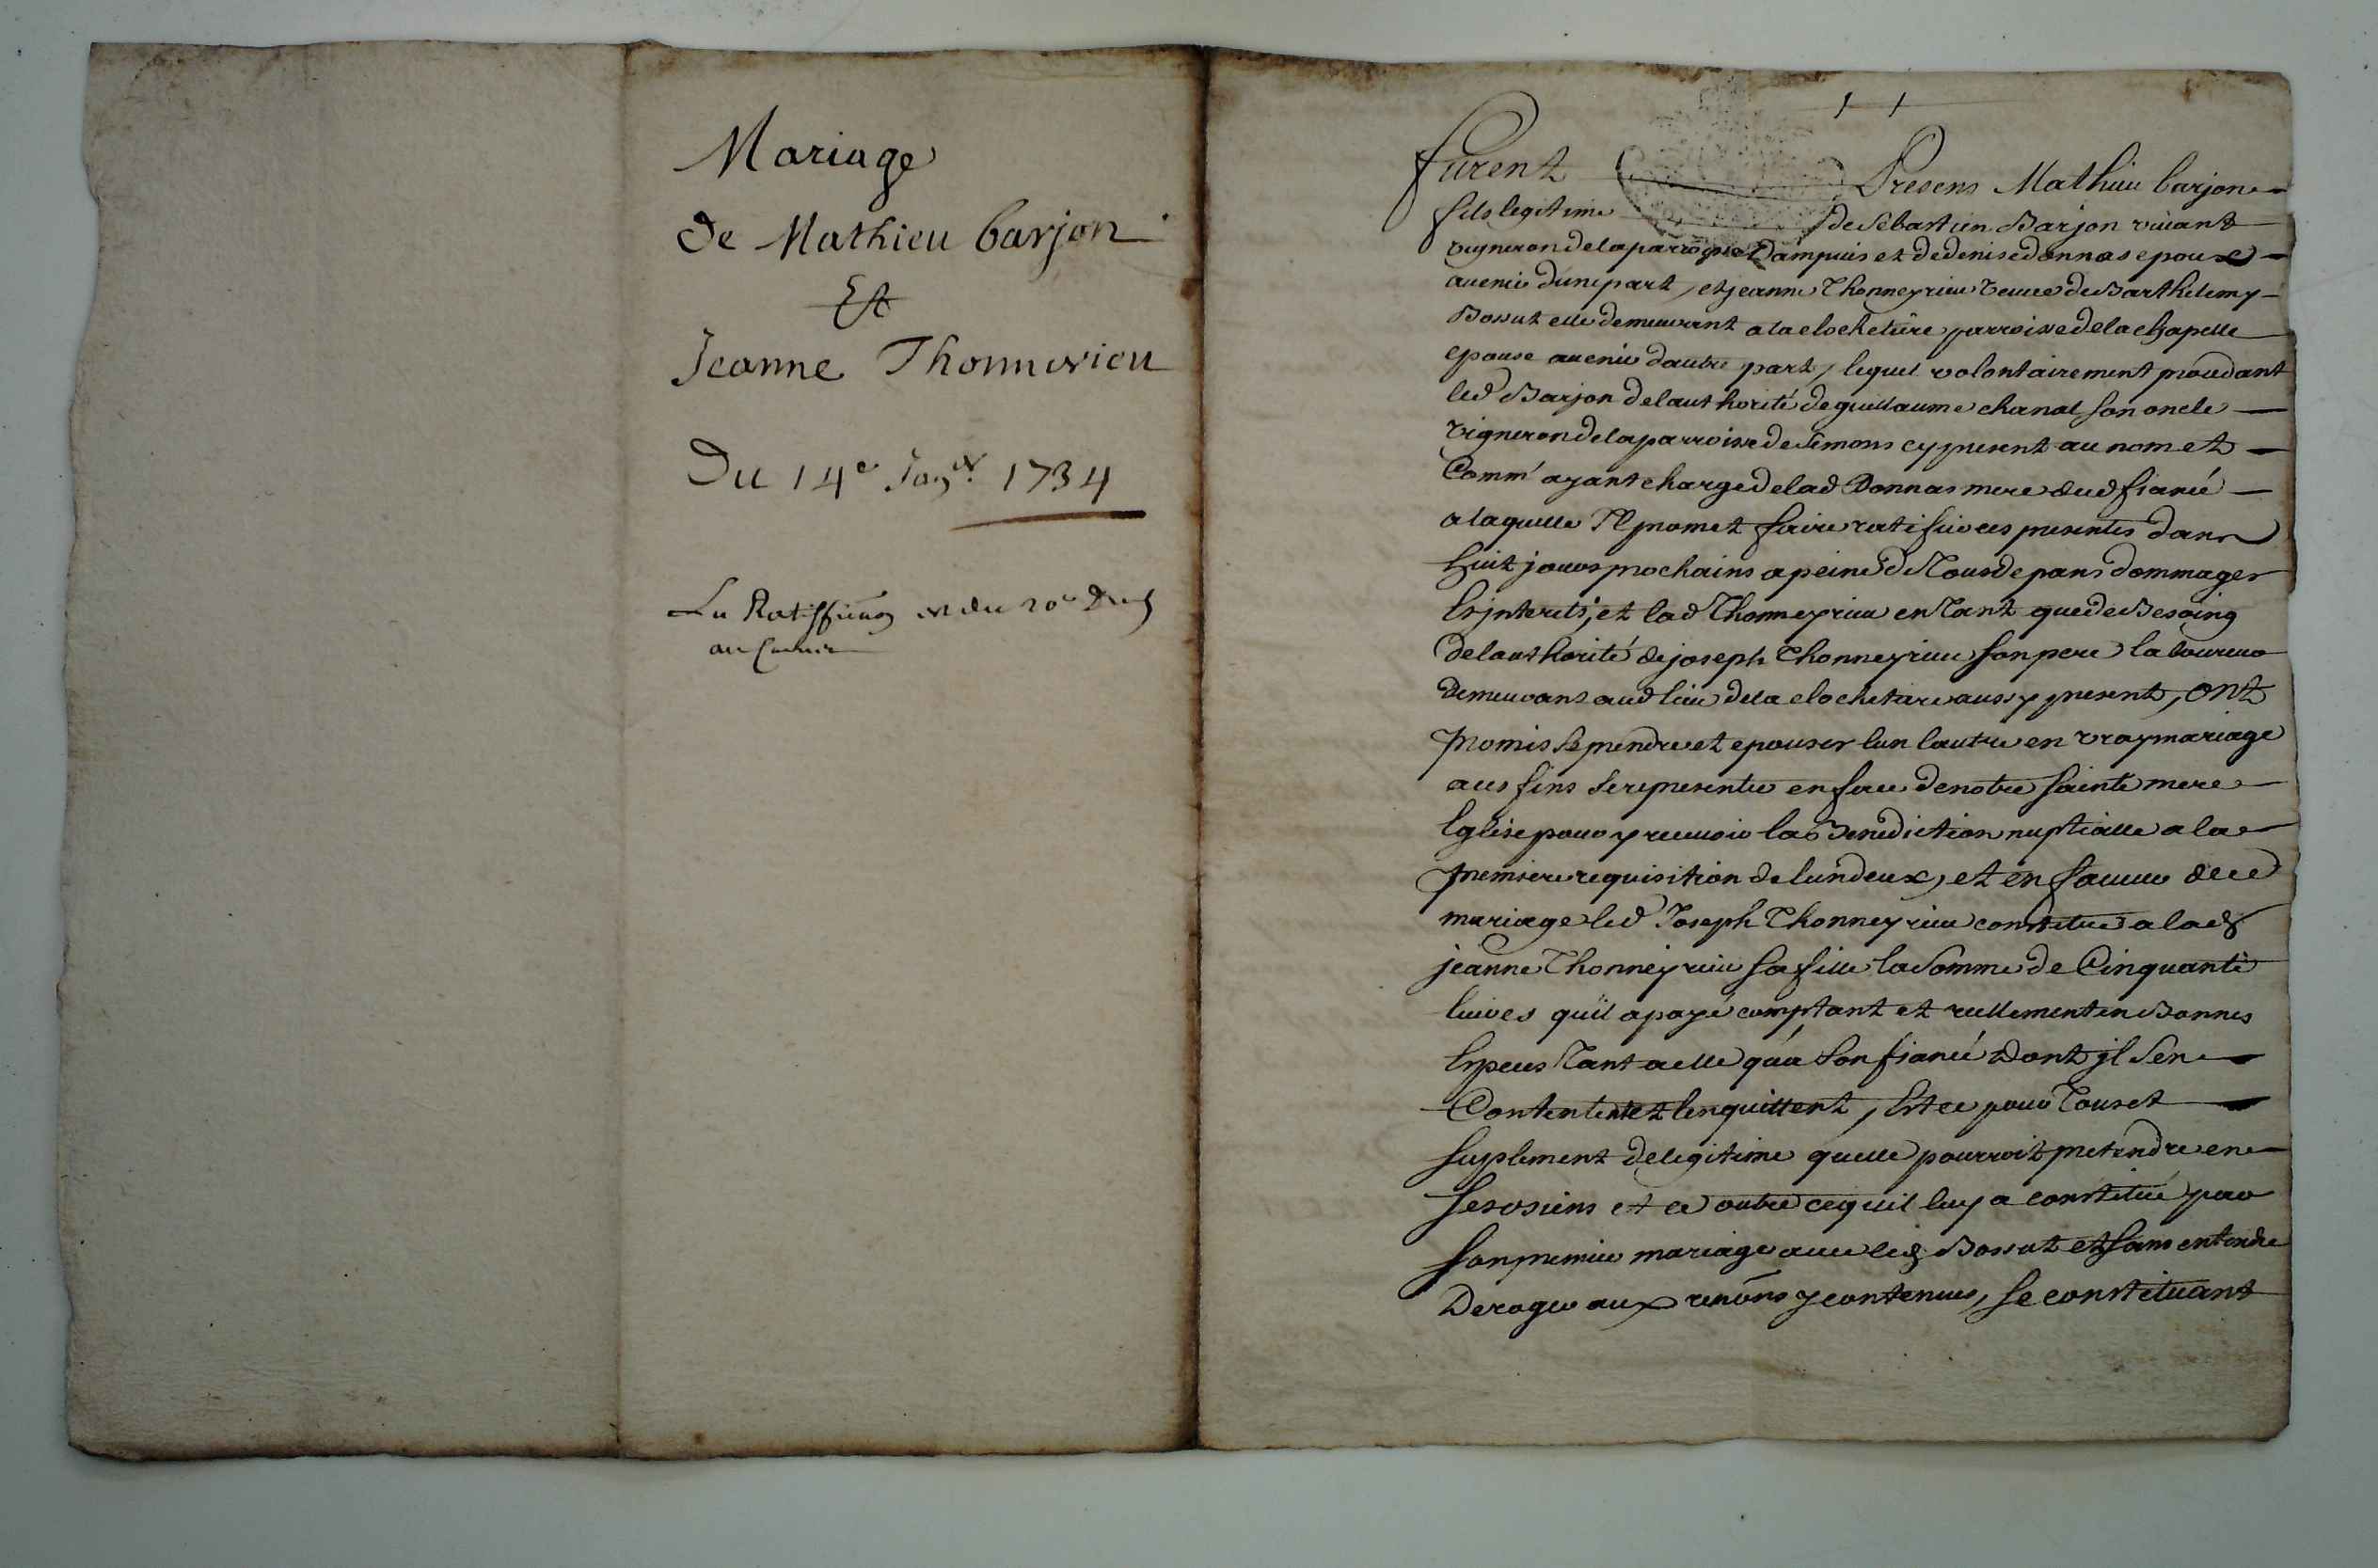 Mariage
de Mathieu barjon
Et
Jeanne Thonnerieu
Du 14e Janer 1734
La est du 20e
au
furent Presens Mathieu barjon
fils legitime de Sebastien Barjon vivant
vigneron de la parroisse Dampuis et de denise donnas epoux
avenir dune part, et jeanne Thonneyrieu veuve de Barthelemy
Bossut elle demeurant a la clochetiere parroisse de la chapelle
epouse avenir dautre part, lequel volontairement procedant
led Barjon de lauthorité de guillaume chanal son oncle
vigneron de la parroisse de Simons cy present au nom et
Comm' ayant charge de lad Donnas mere dud fiancé
a laquelle Il promet faire ratifier ces presentes dans
huit jours prochains a peine de Tous depans dommages
Esjnterets, et lad Thonneyrieu en Tant que de Besoing
de lauthorité de joseph Thonneyrieu son pere laboureur
demeurant aud lieu de la clochetiere aussy present, ont
promis se prendre et epouser lun lautre en vray mariage
a ces fins se representer en face de notre sainte mere
Eglise pour y recevoir la Benediction nuptialle a la
premiere requisition de lun deux, et en faveur de ce
mariage led Joseph Thonneyrieu constitue a lad
jeanne Thonneyrieu sa fille la Somme de Cinquante
livres quil a payé comptant et reellement en Bonnes
Especes Tant a elle qua son fiancé Dont jl sen
Contentent et lenquittent, Est ce pour Tous et
suplement de legitime quelle pourroit pretendre en
ses osiens et ce outre ce quil luy a constitué par
son premier mariage avec led Bossut et sans entendre
Deroger aux renôns y contenues, se constituant